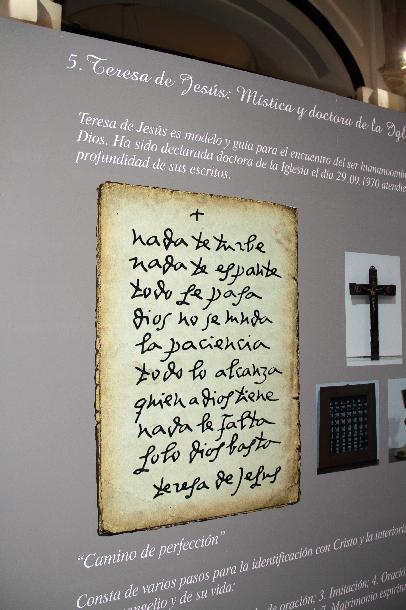 5. Teresa de Jesús: Mística y doctora de la Igl
Teresa de Jesús es modelo y guía para el encuentro del ser humano
Dios. Ha sido declarada doctora de la Iglesia el día 29.09.1970 atendie
profundidad de sus escritos.
+
nada te turbe
nada te espante
todo se pasa
dios no se muda
la paciencia
todo lo alcanza
quien a dios tiene
nada le falta
solo dios basta
teresa de Jesus
"Camino de perfección"
Consta de varios pasos para la identificación con Cristo y la interiori
evangelio y de su vida:
de oración; 3. Imitación; 4. Oració
7. Matrimonio espiritu